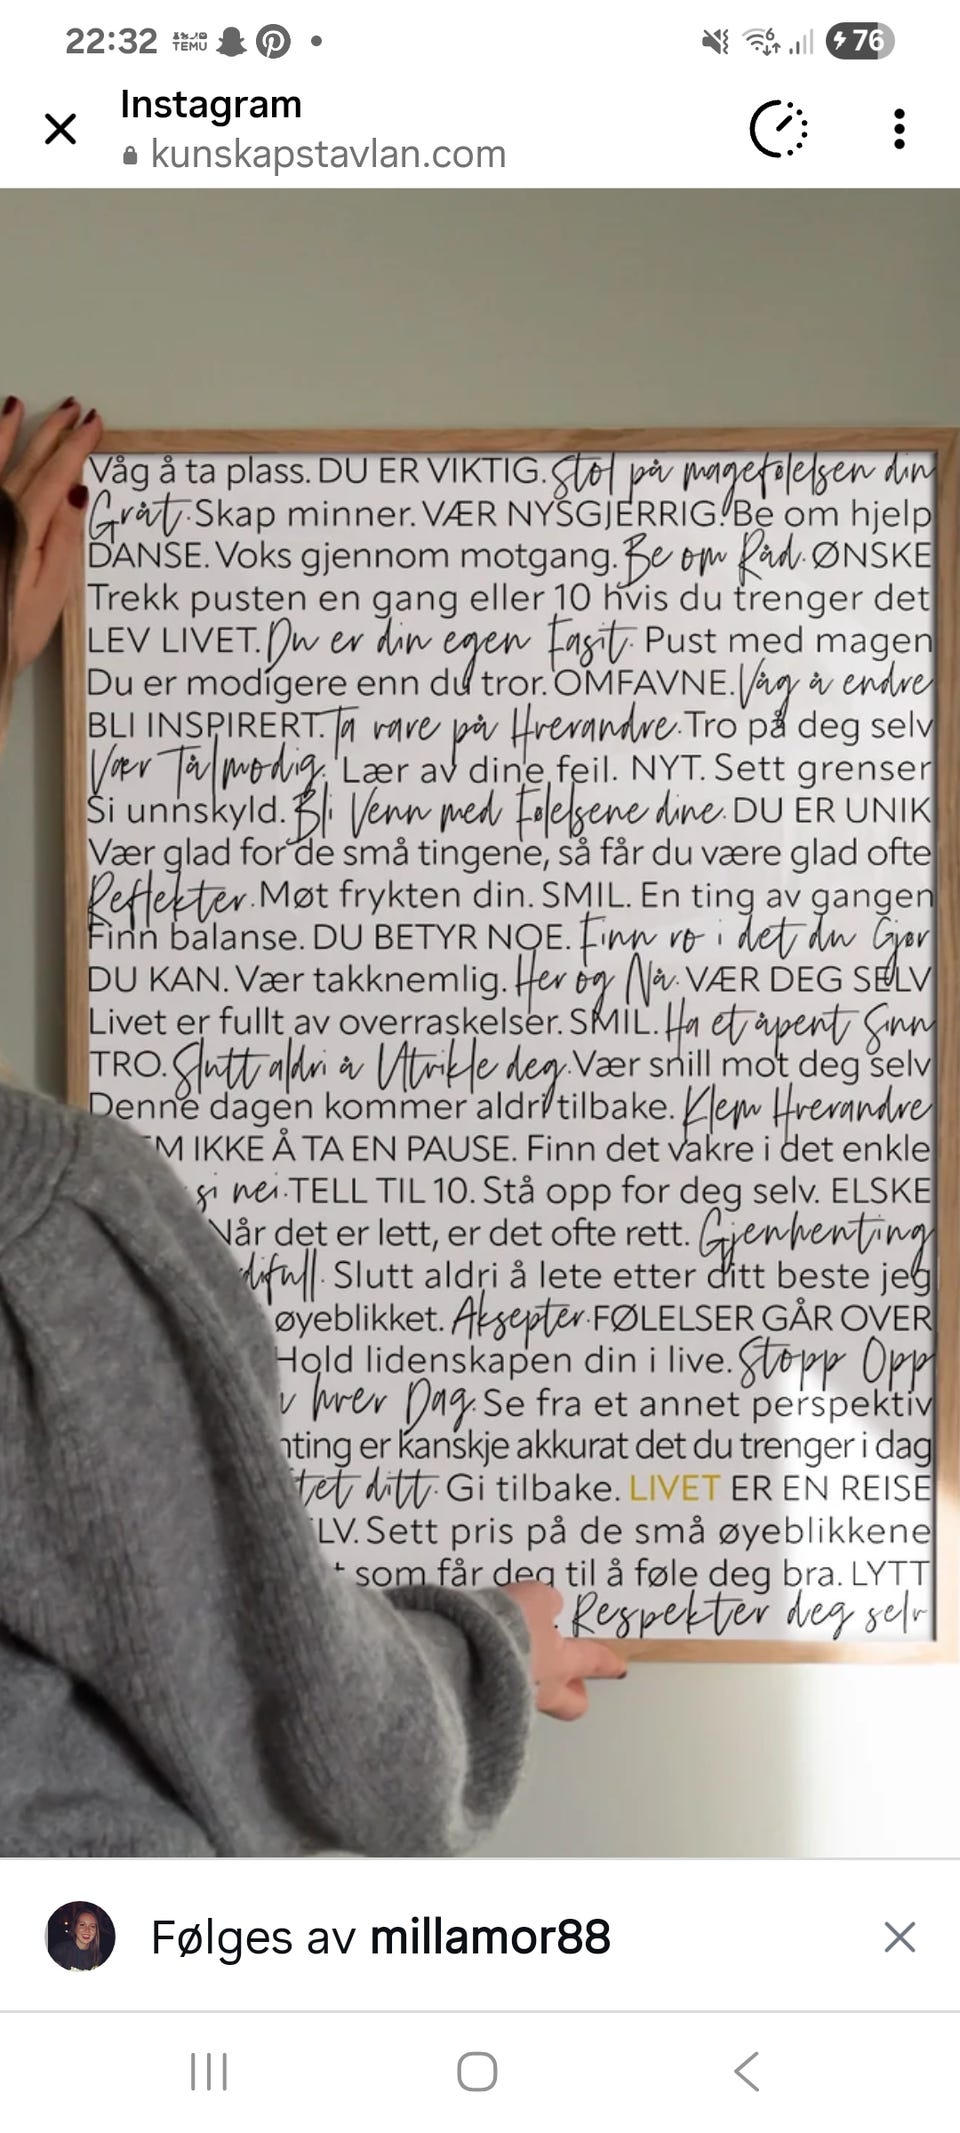 22:32
TEMU
6
76
Instagram
kunskapstavlan.com
Våg å ta plass. DU ER VIKTIG. Stol på magefølelsen din
Gråt. Skap minner. VÆR NYSGJERRIG. Be om hjelp
DANSE. Voks gjennom motgang. Be om Råd. ØNSKE
Trekk pusten en gang eller 10 hvis du trenger det
LEV LIVET. Du er din egen Fasit. Pust med magen
Du er modigere enn du tror. OMFAVNE. Våg å endre
BLI INSPIRERT. Ta vare på Hverandre. Tro på deg selv
Vær Tålmodig. Lær av dine feil. NYT. Sett grenser
Si unnskyld. Bli Venn med Følelsene dine. DU ER UNIK
Vær glad for de små tingene, så får du være glad ofte
Reflekter. Møt frykten din. SMIL. En ting av gangen
Finn balanse. DU BETYR NOE. Finn ro i det du Gjør
DU KAN. Vær takknemlig. Her og Nå. VÆR DEG SELV
Livet er fullt av overraskelser. SMIL. Ha et åpent Sinn
TRO. Slutt aldri å Utvikle deg. Vær snill mot deg selv
Denne dagen kommer aldri tilbake. Klem Hverandre
M IKKE Å TA EN PAUSE. Finn det vakre i det enkle
si nei. TELL TIL 10. Stå opp for deg selv. ELSKE
Når det er lett, er det ofte rett. Gjenhenting
difull. Slutt aldri å lete etter ditt beste jeg
øyeblikket. Aksepter. FØLELSER GÅR OVER
Hold lidenskapen din i live. Stopp Opp
hver Dag. Se fra et annet perspektiv
nting er kanskje akkurat det du trenger i dag
tet ditt. Gi tilbake. LIVET ER EN REISE
LV. Sett pris på de små øyeblikkene
som får deg til å føle deg bra. LYTT
. Respekter deg selv
Følges av millamor88